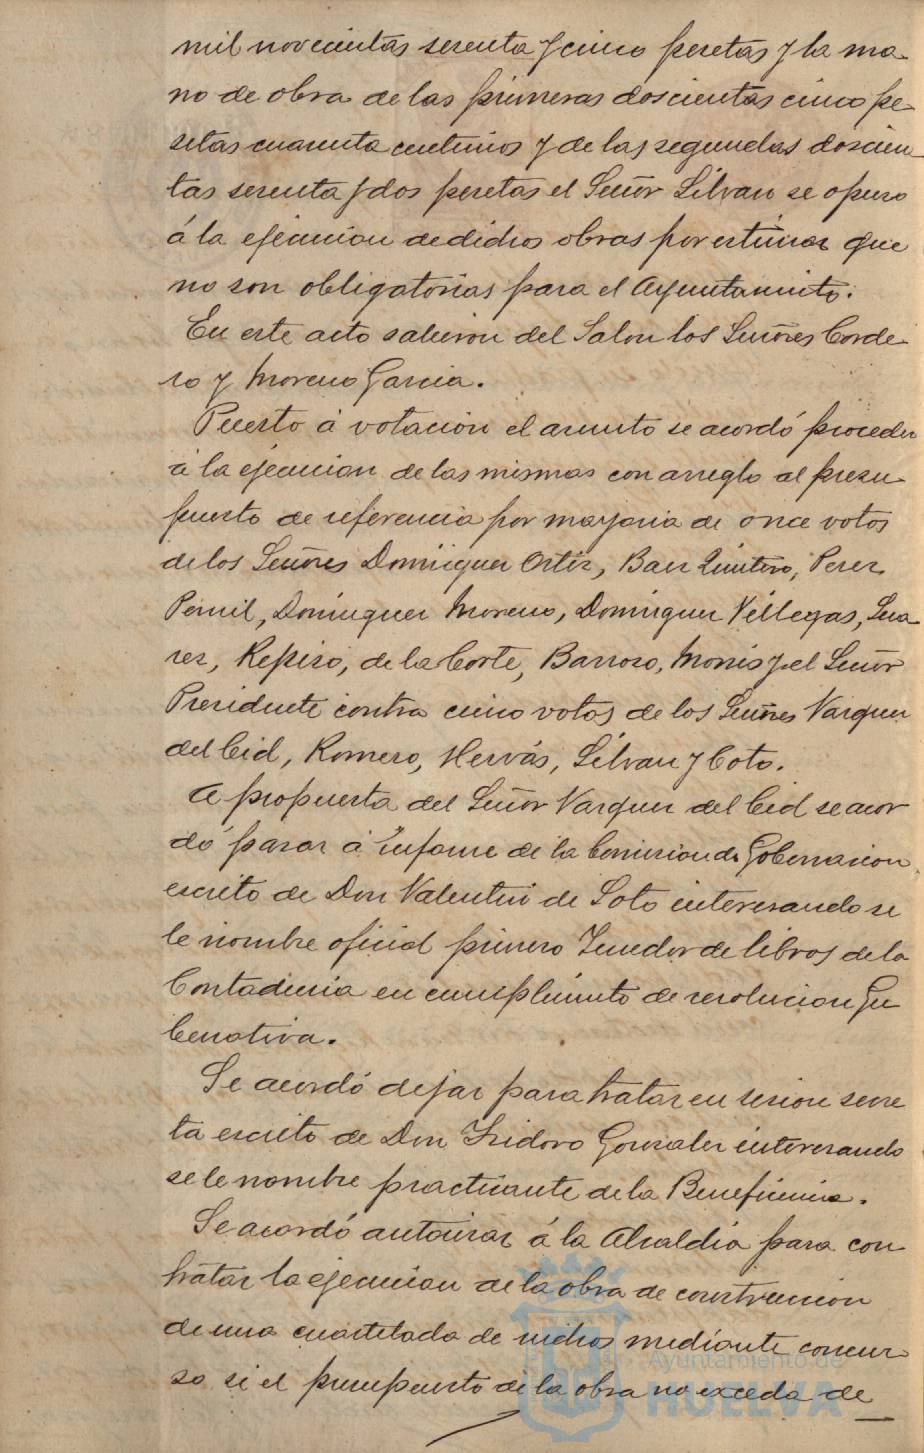 mil novecientas sesenta y cinco pesetas y la ma-
no de obra de las primeras doscientas cinco pe-
setas cuarenta centimos y de las segundas doscien-
tas sesenta y dos pesetas el Señor Silvan se opuso
á la ejecucion de dichos obras por estimar que
no son obligatorias para el Ayuntamiento.
En este acto salieron del Salon los Señores Corde-
ro y Moreno Garcia.
Puesto á votacion el asunto se acordó proceder
á la ejecucion de las mismas con arreglo al presu-
puesto de referencia por mayoria de once votos
de los Señores Dominguez Ortiz, Baez Quintero, Perez
Pomil, Dominguez Moreno, Dominguez Villegas, Sua-
rez, Repiso, de la Corte, Barroso, Monis y el Señor
Presidente contra cinco votos de los Señores Vazquez
del Cid, Romero, Hervás, Silvan y Coto.
A propuesta del Señor Vazquez del Cid se acor
dó pasar á informe de la Comision de Gobernacion
escrito de Don Valentin de Soto interesando se
le nombre oficial primero Tenedor de libros de la
Contaduria en cumplimiento de resolucion Gu
bernativa.
Se acordó dejar para tratar en sesion secre
ta escrito de Don Isidoro Gonzalez interesando
se le nombre practicante de la Beneficencia.
Se acordó autorizar á la Alcaldia para con
tratar la ejecucion de la obra de construccion
de una cuartelada de nichos mediante concur-
so si el presupuesto de la obra no exceda de
Ayuntamiento de
HUELVA